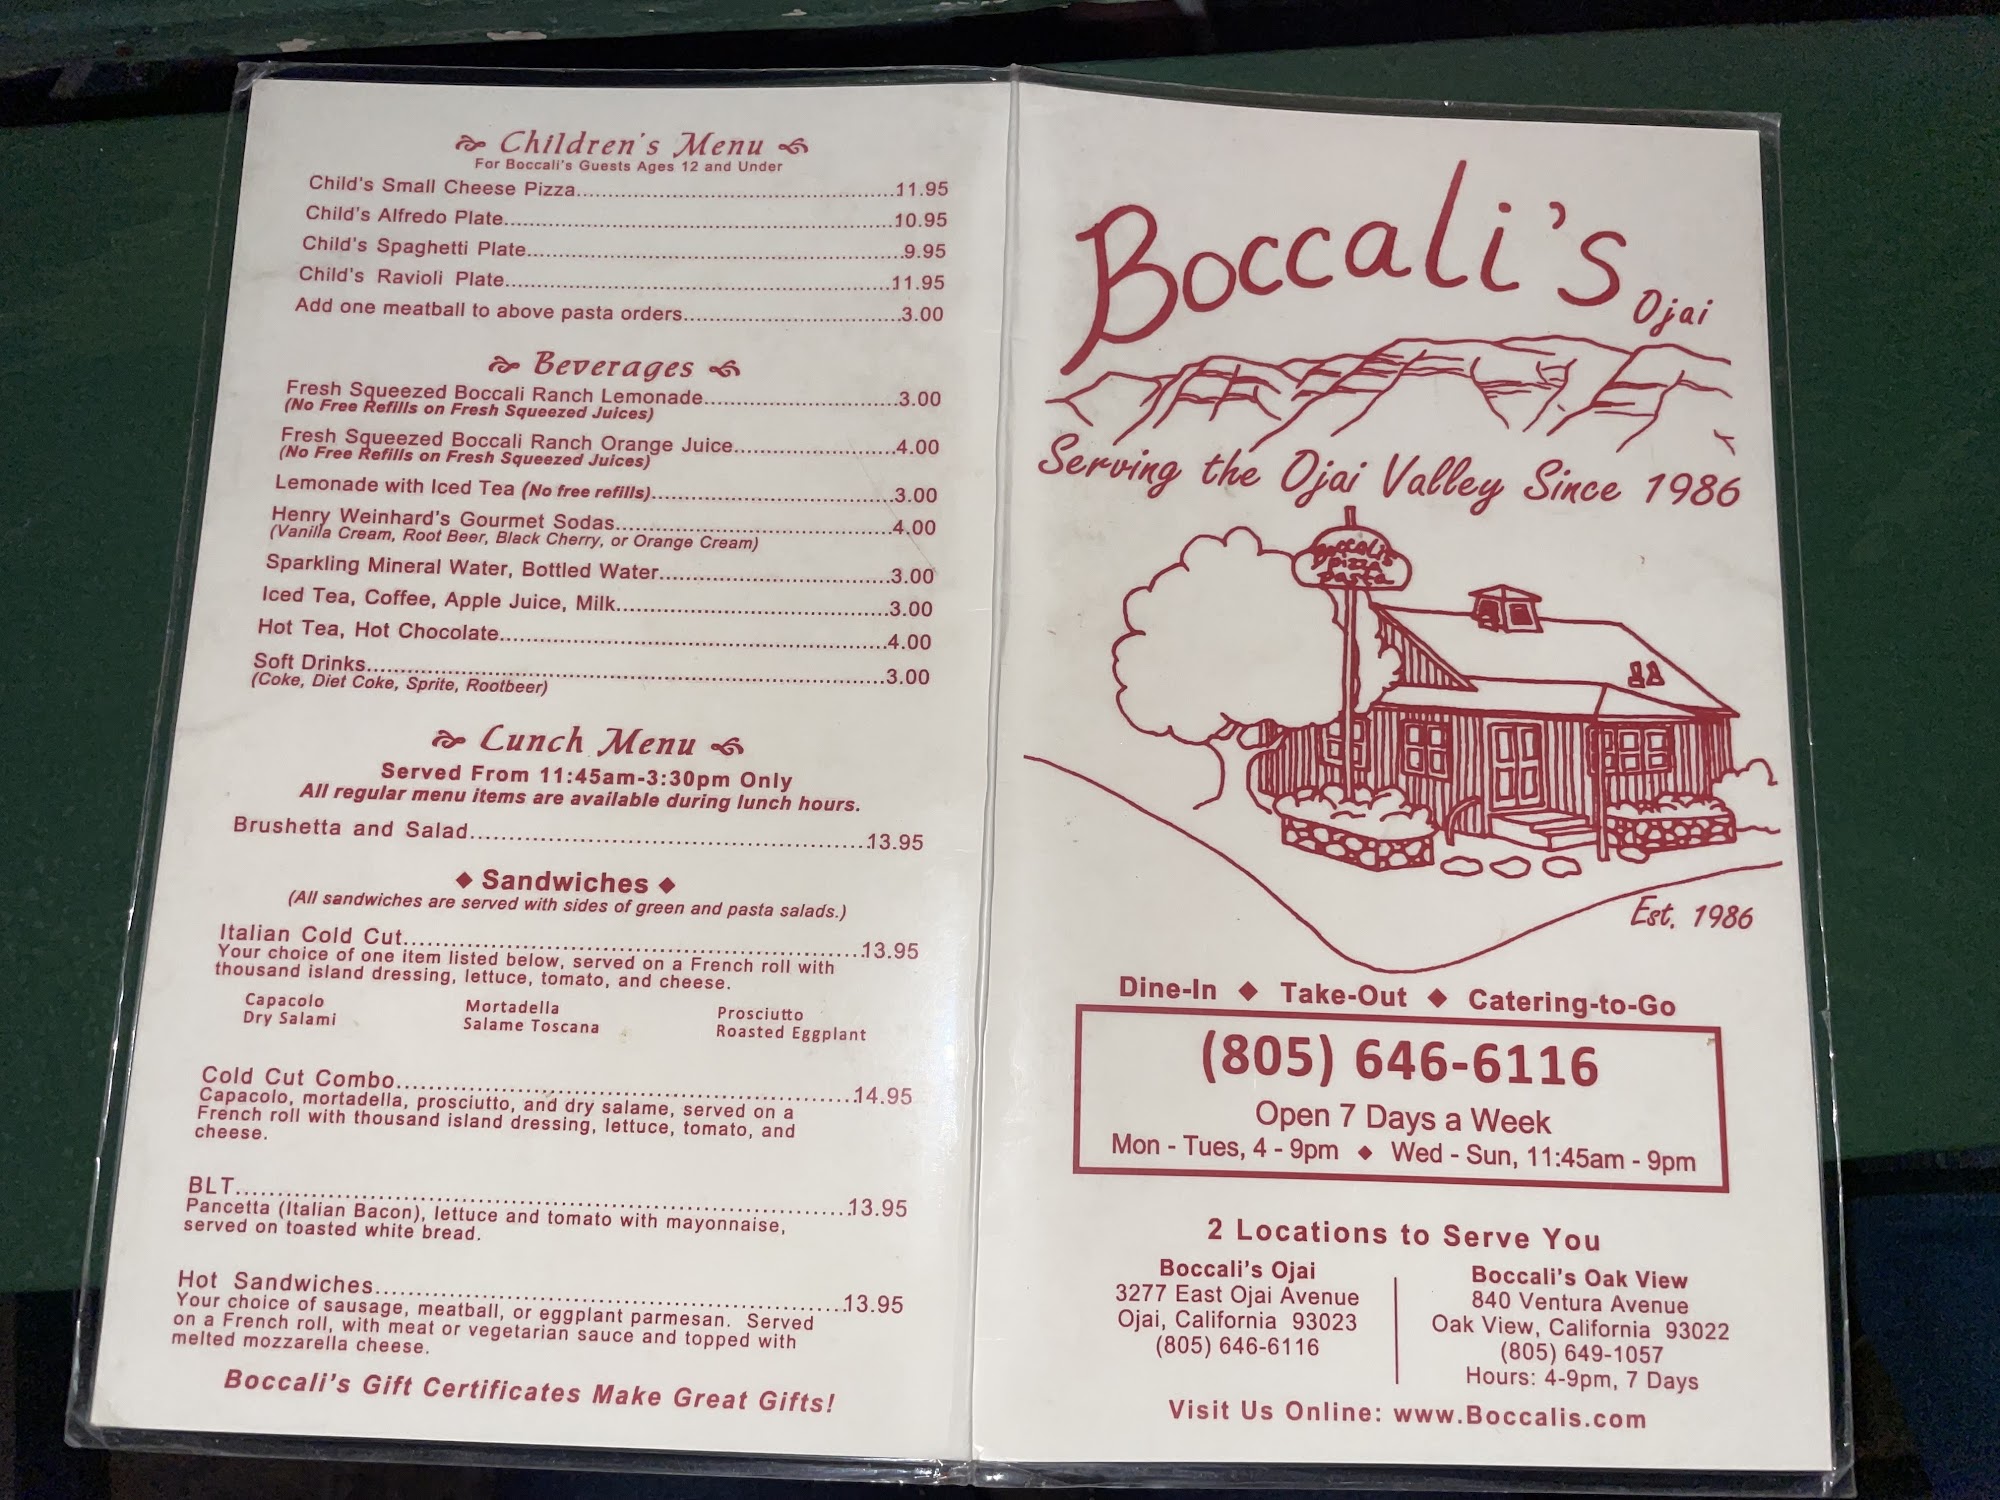 Children's Menu
For Boccali's Guests Ages 12 and Under
Child's Small Cheese Pizza 11.95
Child's Alfredo Plate 10.95
Child's Spaghetti Plate 9.95
Child's Ravioli Plate 11.95
Add one meatball to above pasta orders 3.00
Beverages
Fresh Squeezed Boccali Ranch Lemonade 3.00
(No Free Refills on Fresh Squeezed Juices)
Fresh Squeezed Boccali Ranch Orange Juice 4.00
(No Free Refills on Fresh Squeezed Juices)
Lemonade with Iced Tea (No free refills) 3.00
Henry Weinhard's Gourmet Sodas 4.00
(Vanilla Cream, Root Beer, Black Cherry, or Orange Cream)
Sparkling Mineral Water, Bottled Water 3.00
Iced Tea, Coffee, Apple Juice, Milk 3.00
Hot Tea, Hot Chocolate 4.00
Soft Drinks 3.00
(Coke, Diet Coke, Sprite, Rootbeer)
Lunch Menu
Served From 11:45am-3:30pm Only
All regular menu items are available during lunch hours.
Brushetta and Salad 13.95
◆ Sandwiches ◆
(All sandwiches are served with sides of green and pasta salads.)
Italian Cold Cut 13.95
Your choice of one item listed below, served on a French roll with
thousand island dressing, lettuce, tomato, and cheese.
Capacolo Mortadella Prosciutto
Dry Salami Salame Toscana Roasted Eggplant
Cold Cut Combo 14.95
Capacolo, mortadella, prosciutto, and dry salame, served on a
French roll with thousand island dressing, lettuce, tomato, and
cheese.
BLT 13.95
Pancetta (Italian Bacon), lettuce and tomato with mayonnaise,
served on toasted white bread.
Hot Sandwiches 13.95
Your choice of sausage, meatball, or eggplant parmesan. Served
on a French roll, with meat or vegetarian sauce and topped with
melted mozzarella cheese.
Boccali's Gift Certificates Make Great Gifts!
Boccali's
Ojai
Serving the Ojai Valley Since 1986
Boccali's
pizza
pasta
Est. 1986
Dine-In ◆ Take-Out ◆ Catering-to-Go
(805) 646-6116
Open 7 Days a Week
Mon - Tues, 4 - 9pm ◆ Wed - Sun, 11:45am - 9pm
2 Locations to Serve You
Boccali's Ojai
3277 East Ojai Avenue
Ojai, California 93023
(805) 646-6116
Boccali's Oak View
840 Ventura Avenue
Oak View, California 93022
(805) 649-1057
Hours: 4-9pm, 7 Days
Visit Us Online: www.Boccalis.com